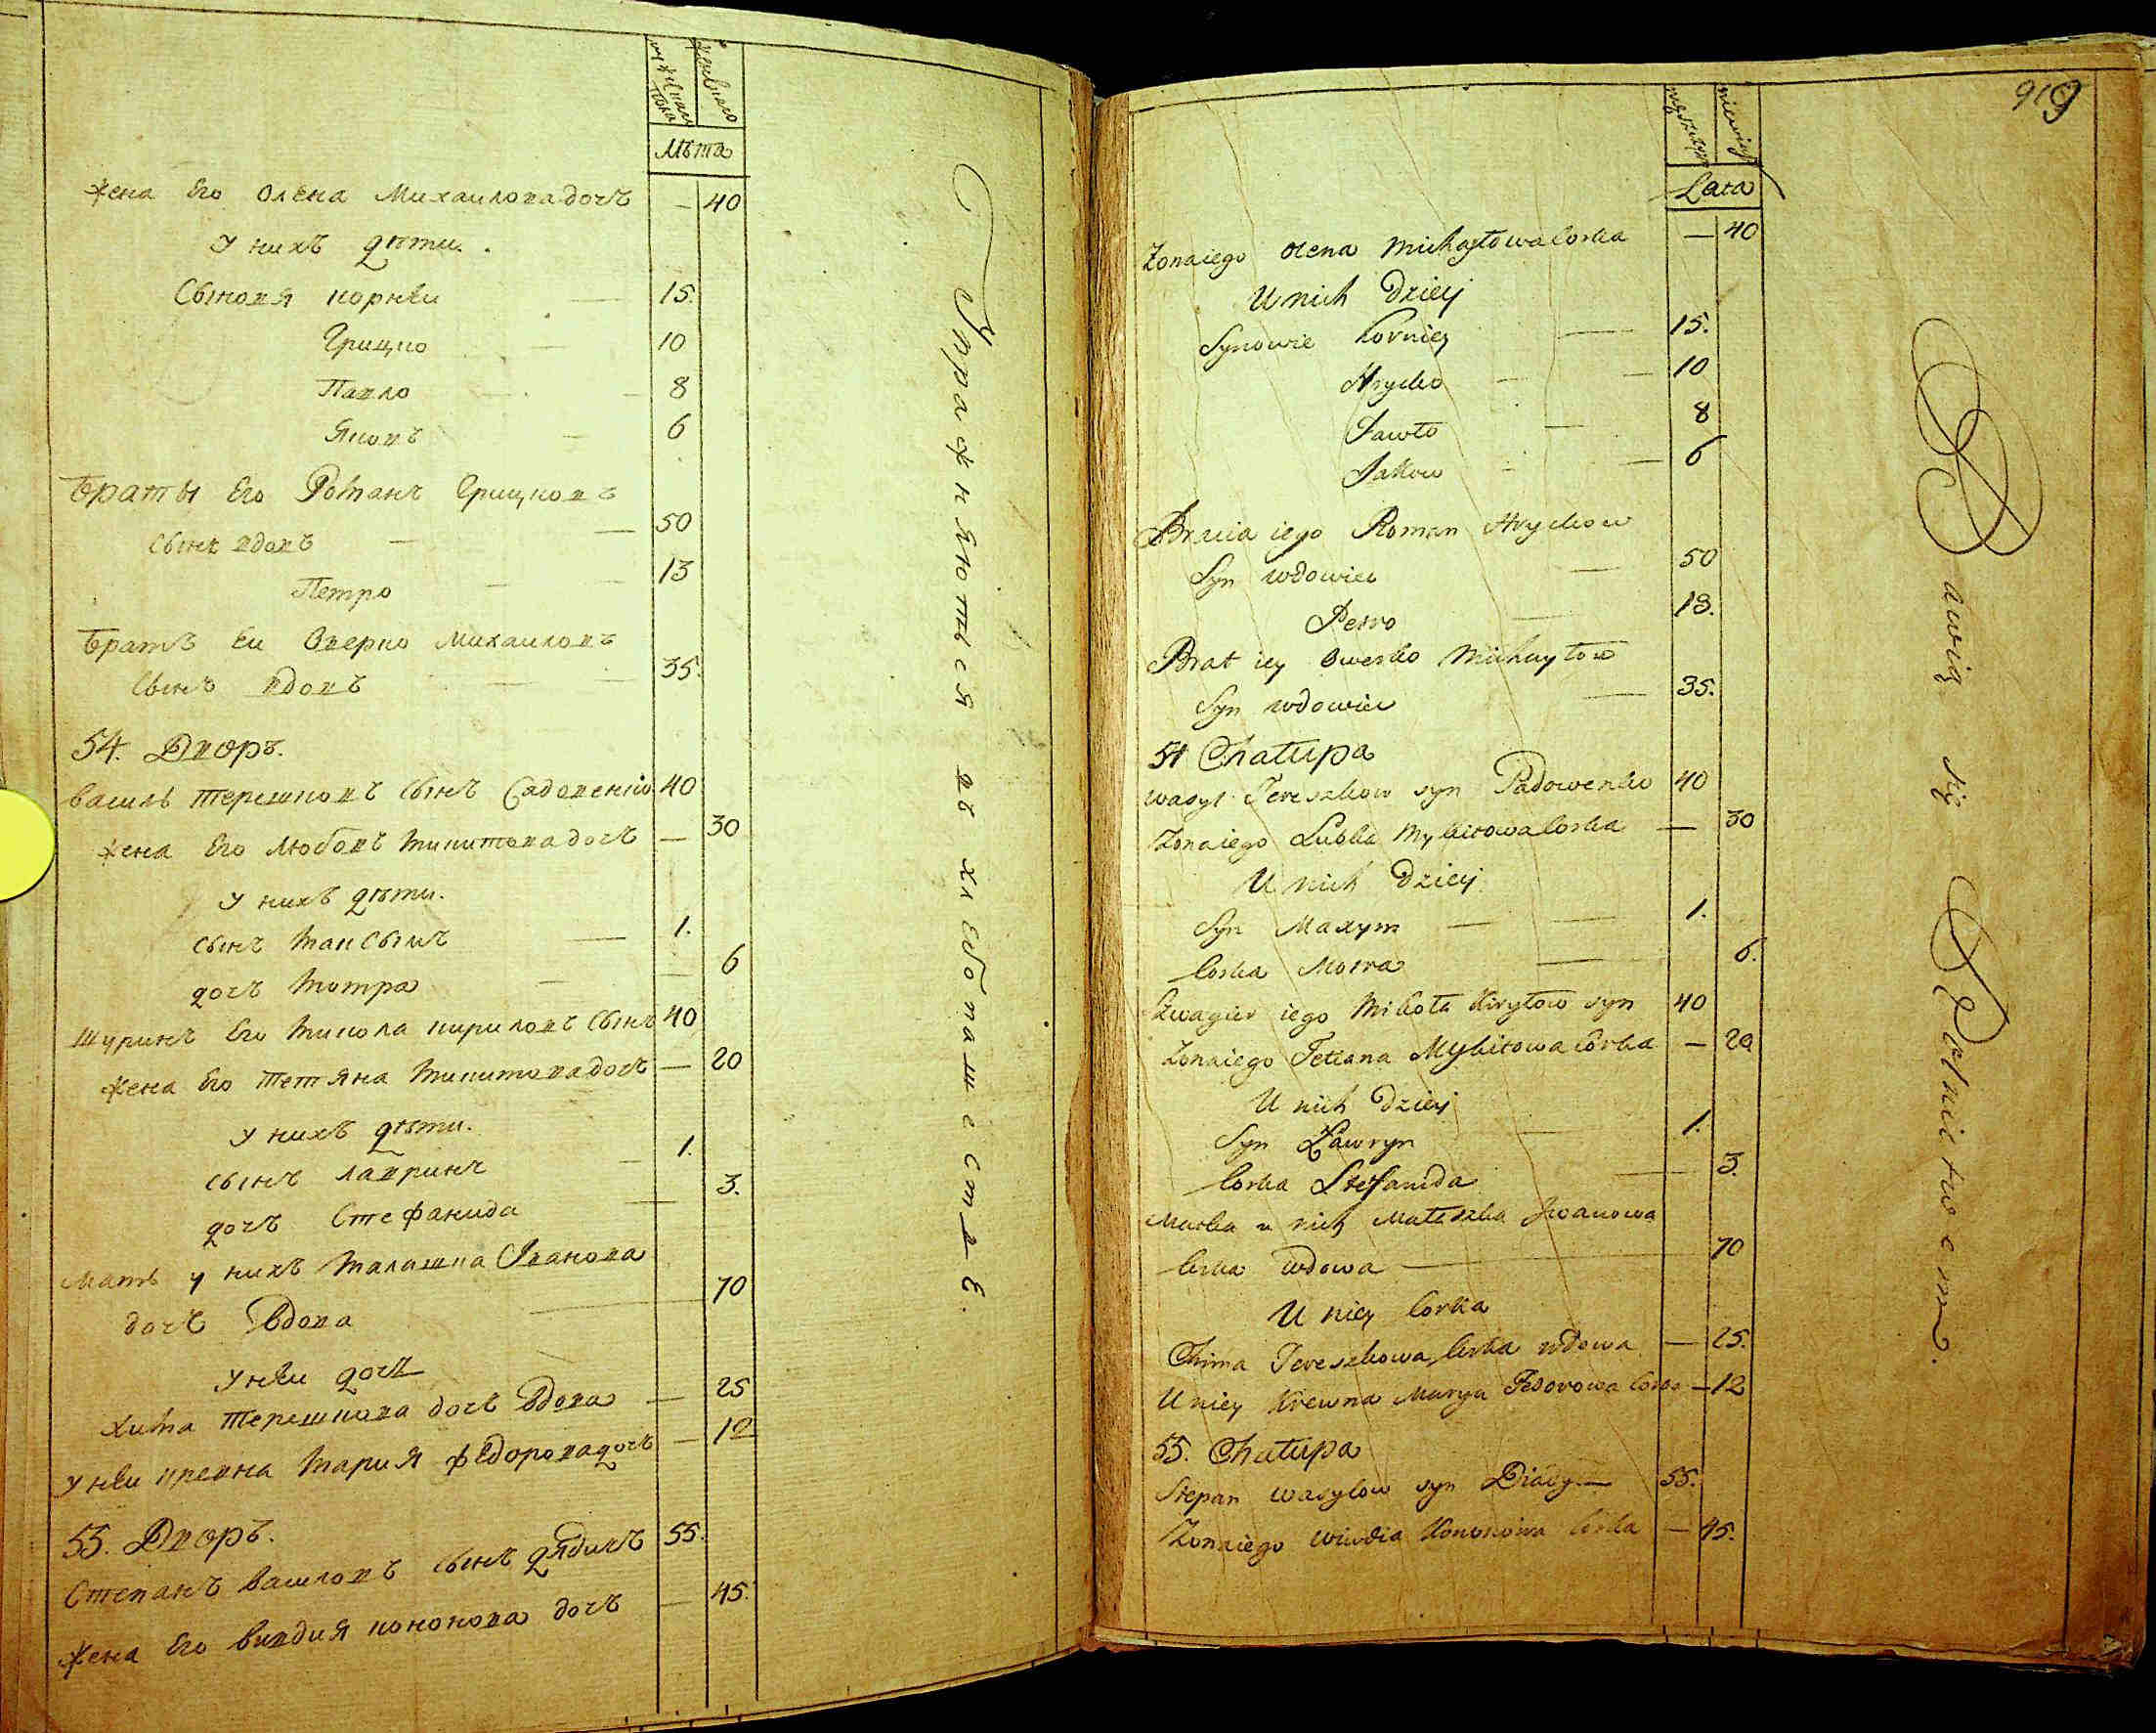 мужескаго пола
женскаго
Лѣта
Жена Его Олена Михаилова дочъ — 40
У нихъ дѣти.
Сыновя Корнѣи — 15.
Грицко 10
Павло — 8
Яковъ — 6
Браты Его Романъ Грицковъ
сынъ вдовъ — 50
Петро — 13
Братъ Еи Оверко Михаиловъ
сынъ вдовъ — 35.
54. Дворъ.
Василь Терешковъ сынъ 40
Жена Его Любовъ Микитова дочъ — 30
У нихъ дѣти.
сынъ Максымъ — 1.
дочъ Мотра — 6
Шуринъ Его Микола Кириловъ сынъ 40
Жена Его Тетяна Микитова дочъ — 20
У нихъ дѣти.
сынъ Лавринъ — 1.
дочъ Стефанида — 3.
Мать у нихъ Малашка Иванова
дочъ вдова — 70
У нѣи дочъ
Хима Терешкова дочъ вдова — 25
У нѣи кревна Мария Федорова дочъ — 12
55. Дворъ.
Степанъ Василовъ сынъ 55.
Жена Его Вивдия Кононова дочъ — 45.
Упражняються въ хлебопашестве.
919
mężczyzn
niewiast
Lata
Zona iego Olena Michayłowa Corka — 40
U nich Dzieci
Synowie Korniey — 15.
Hrycko — 10
Pawło — 8
Jakow — 6
Bracia iego Roman Hryckow
Syn wdowiec — 50
Petro — 13.
Brat iey Owerko Michayłow
Syn wdowiec — 35.
54 Chałupa
Wasyl Tereszkow syn 40
Zona iego Lubka Mykitowa Corka — 30
U nich Dzieci
Syn Maxym — 1.
Corka Motra — 6.
Szwagier iego Mikoła Kiryłow syn 40
Zona iego Tetiana Mykitowa Corka — 20
U nich Dzieci
Syn Ławryn — 1.
Corka Stefanida — 3.
Matka u nich Małaszka Jwanowa
Corka wdowa — 70
U niey Corka
Chima Tereszkowa Corka wdowa — 25.
U niey Krewna Marya Fedorowa Corka — 12
55. Chałupa
Stepan Wasylow syn 55.
Zona iego Wiwdia Kononowa Corka — 45.
Bawią się Rolnictwem.